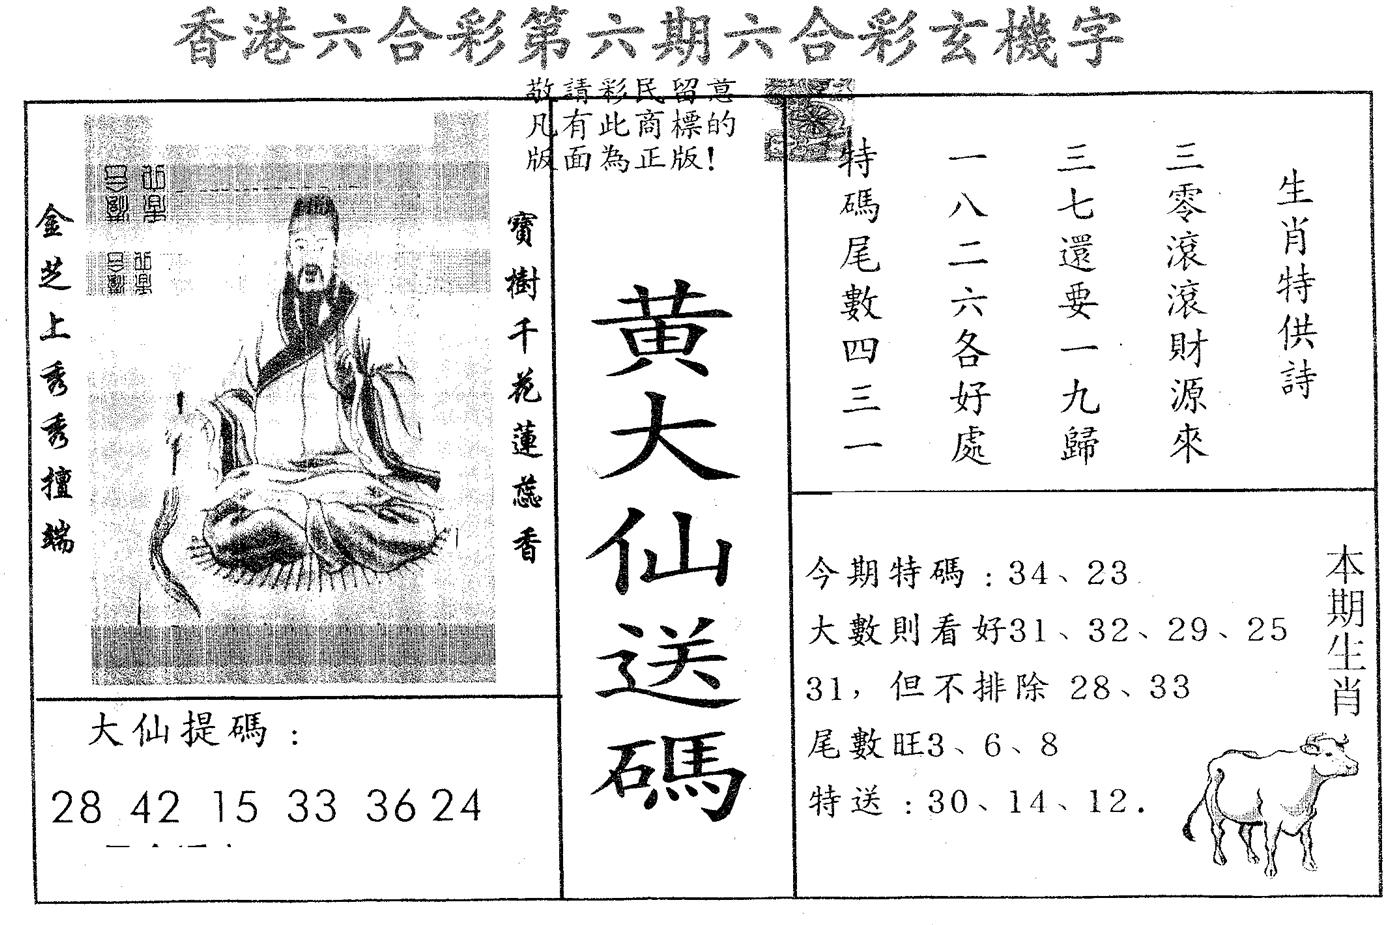 香港六合彩第六期六合彩玄機字
敬請彩民留意
凡有此商標的
版面為正版!
寶樹千花蓮蕊香
金芝上秀秀擅端
大仙提碼：
28 42 15 33 36 24
黄大仙送碼
生肖特供詩
三零滾滾財源來
三七還要一九歸
一八二六各好處
特碼尾數四三一
本期生肖
今期特碼：34、23
大數則看好31、32、29、25
31，但不排除 28、33
尾數旺3、6、8
特送：30、14、12.